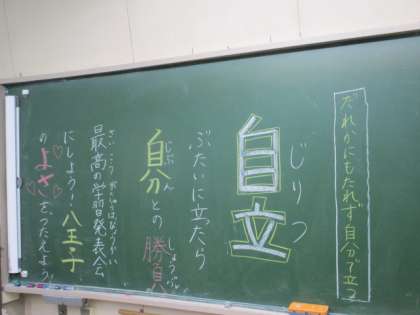 だれかにもたれず自分で立つ
自立
じりつ
ぶたいに立ったら
自分との勝負
じぶん
しょうぶ
最高の学習発表会
さいこう がくしゅうはっぴょうかい
にしよう！八王子
のよさをつたえよう